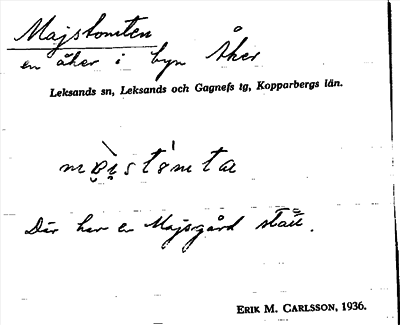 Majstomten
en åker i byn Åker
Leksands sn, Leksands och Gagnefs tg, Kopparbergs län.
Där har en Majsgård stått.
ERIK M. CARLSSON, 1936.